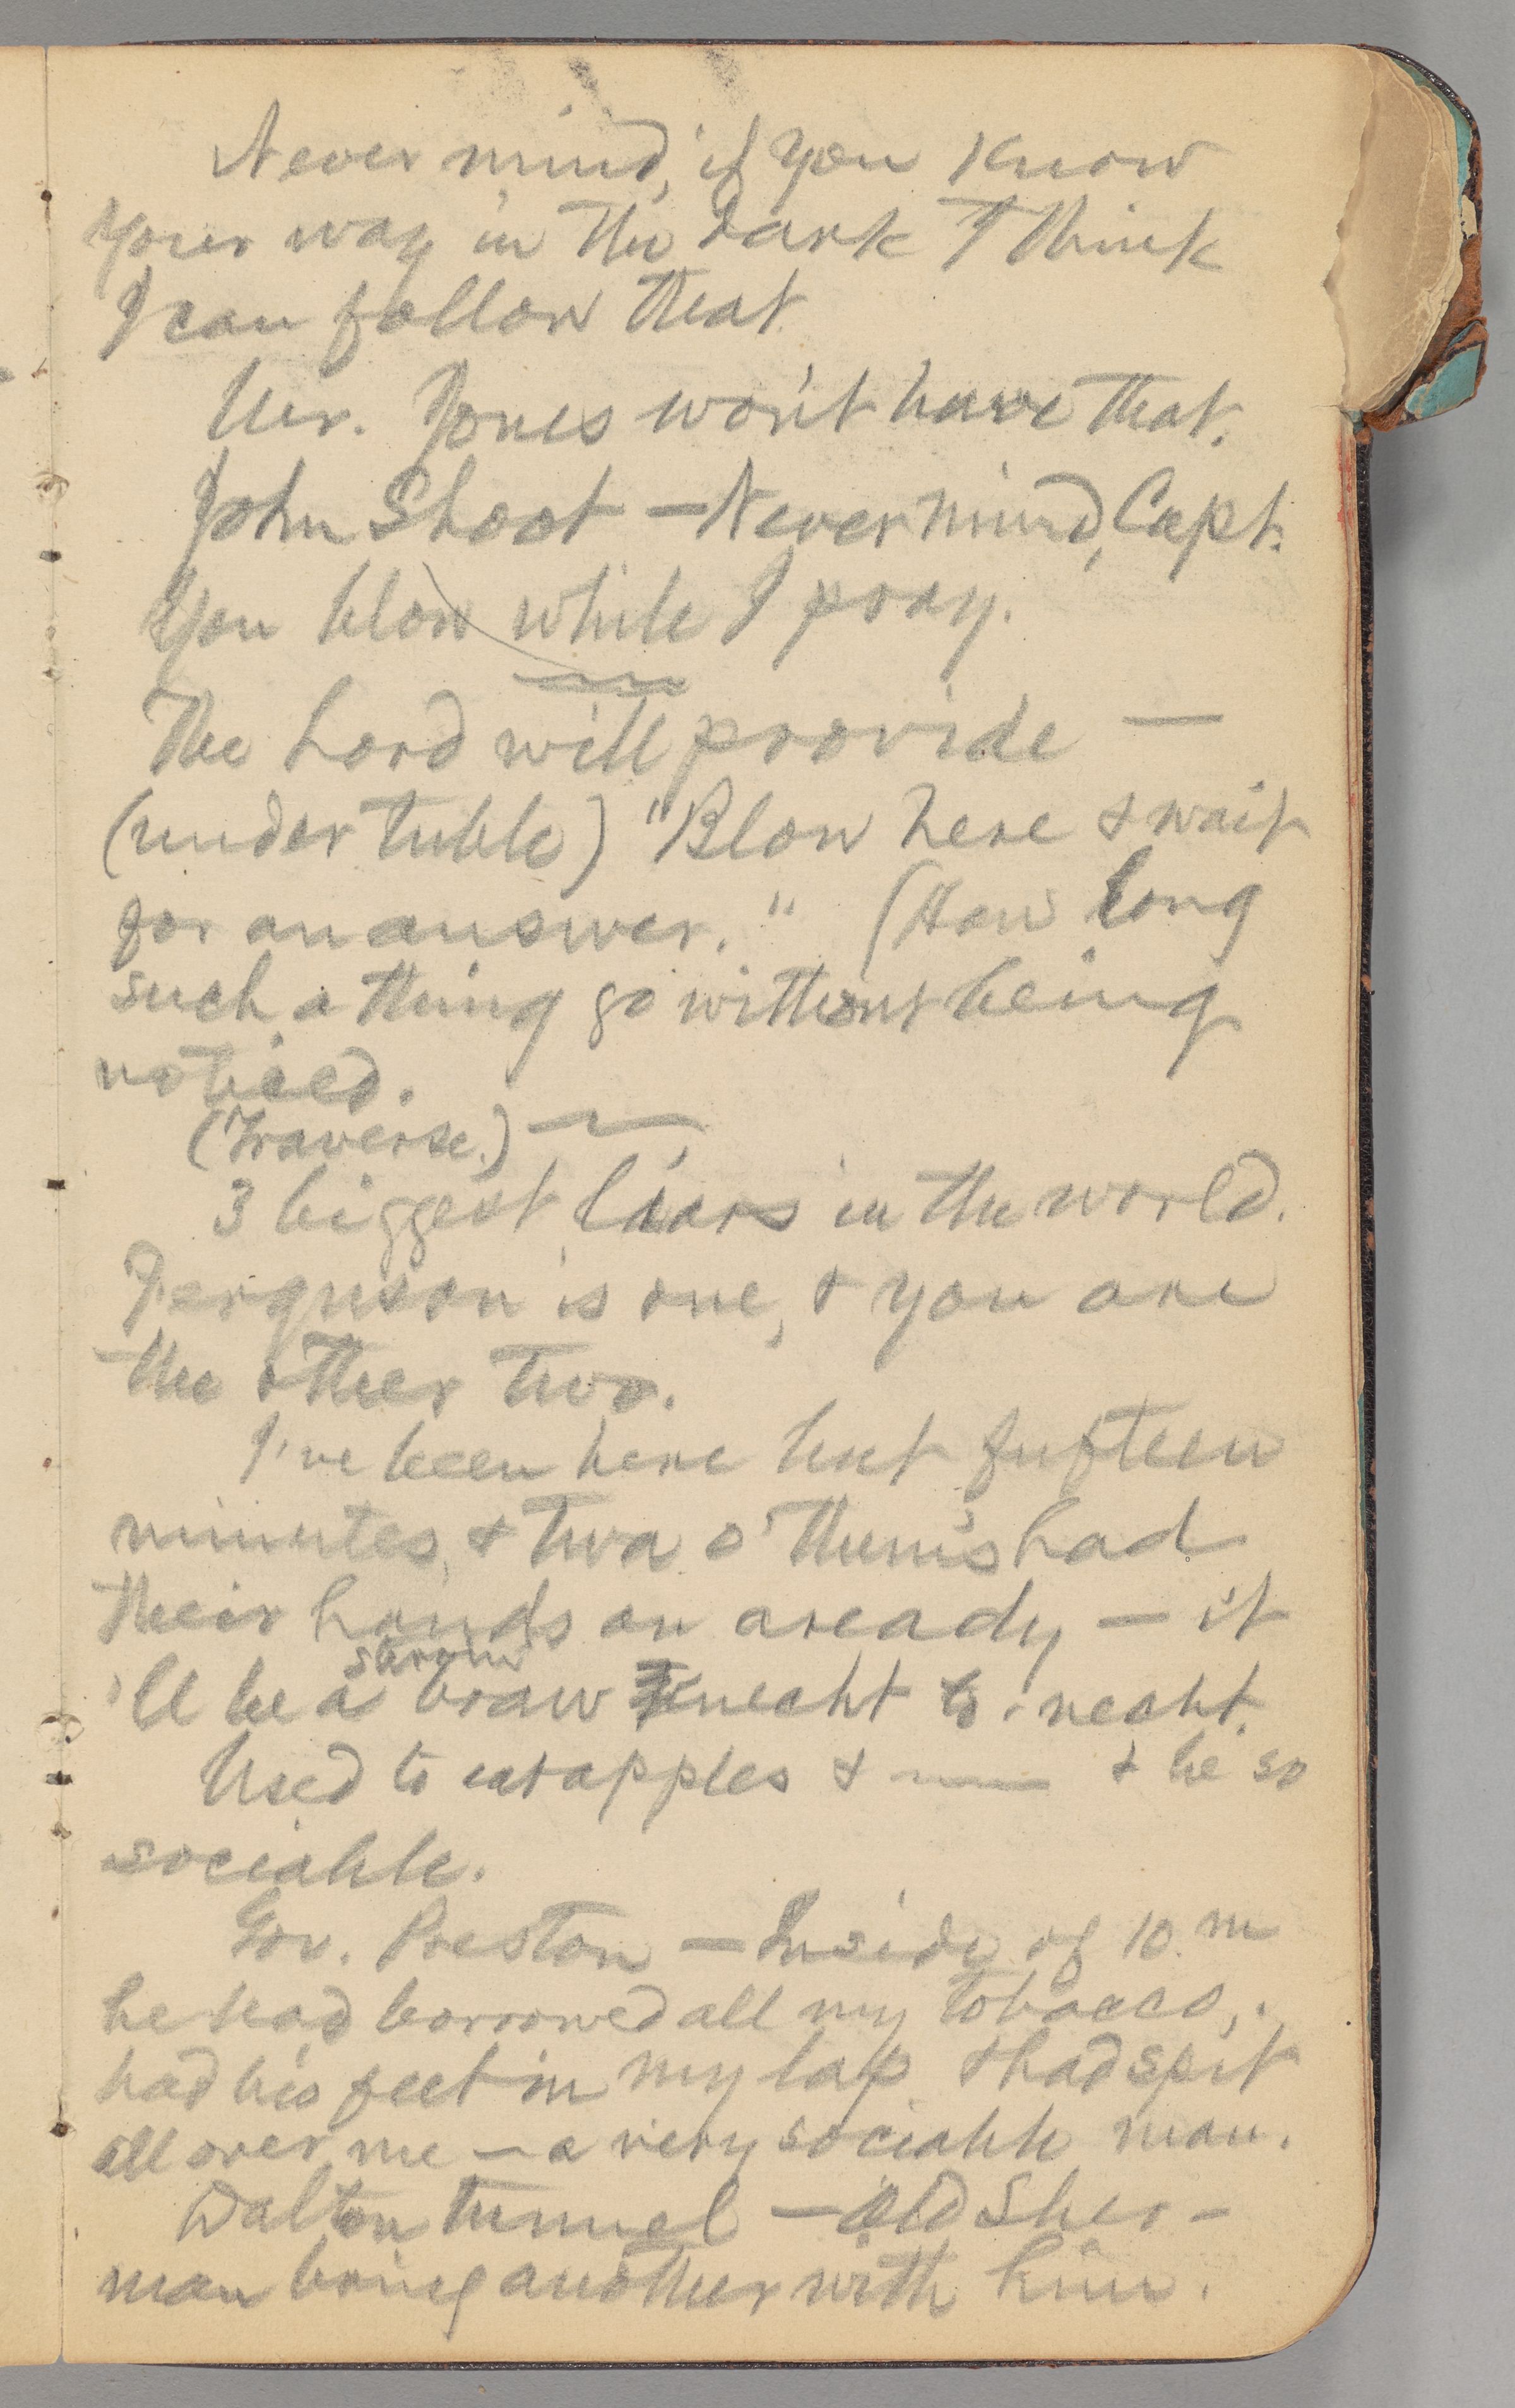 Never mind, if you know
your way in the dark I think
I can follow that.
Mr. Jones won't have that.
John Shoot — Never mind, Capt.
You blow while I pray.
The Lord will provide —
(under tubble) "Blow here & wait
for an answer." (How long
such a thing go without being
noticed.
(Traverse.)
3 biggest liars in the world.
Ferguson is one, & you are
the other two.
I've been here but fufteen
minutes, & twa o' thum's had
their honds on aready — it
'll be a braw knecht to-necht.
Used to eat apples & —— & be so
sociable.
Gov. Preston — Inside of 10 m
he had borrowed all my tobacco,
had his feet in my lap & had spit
all over me — a very sociable man.
Dalton tunnel — Old Sher-
man bring another with him.